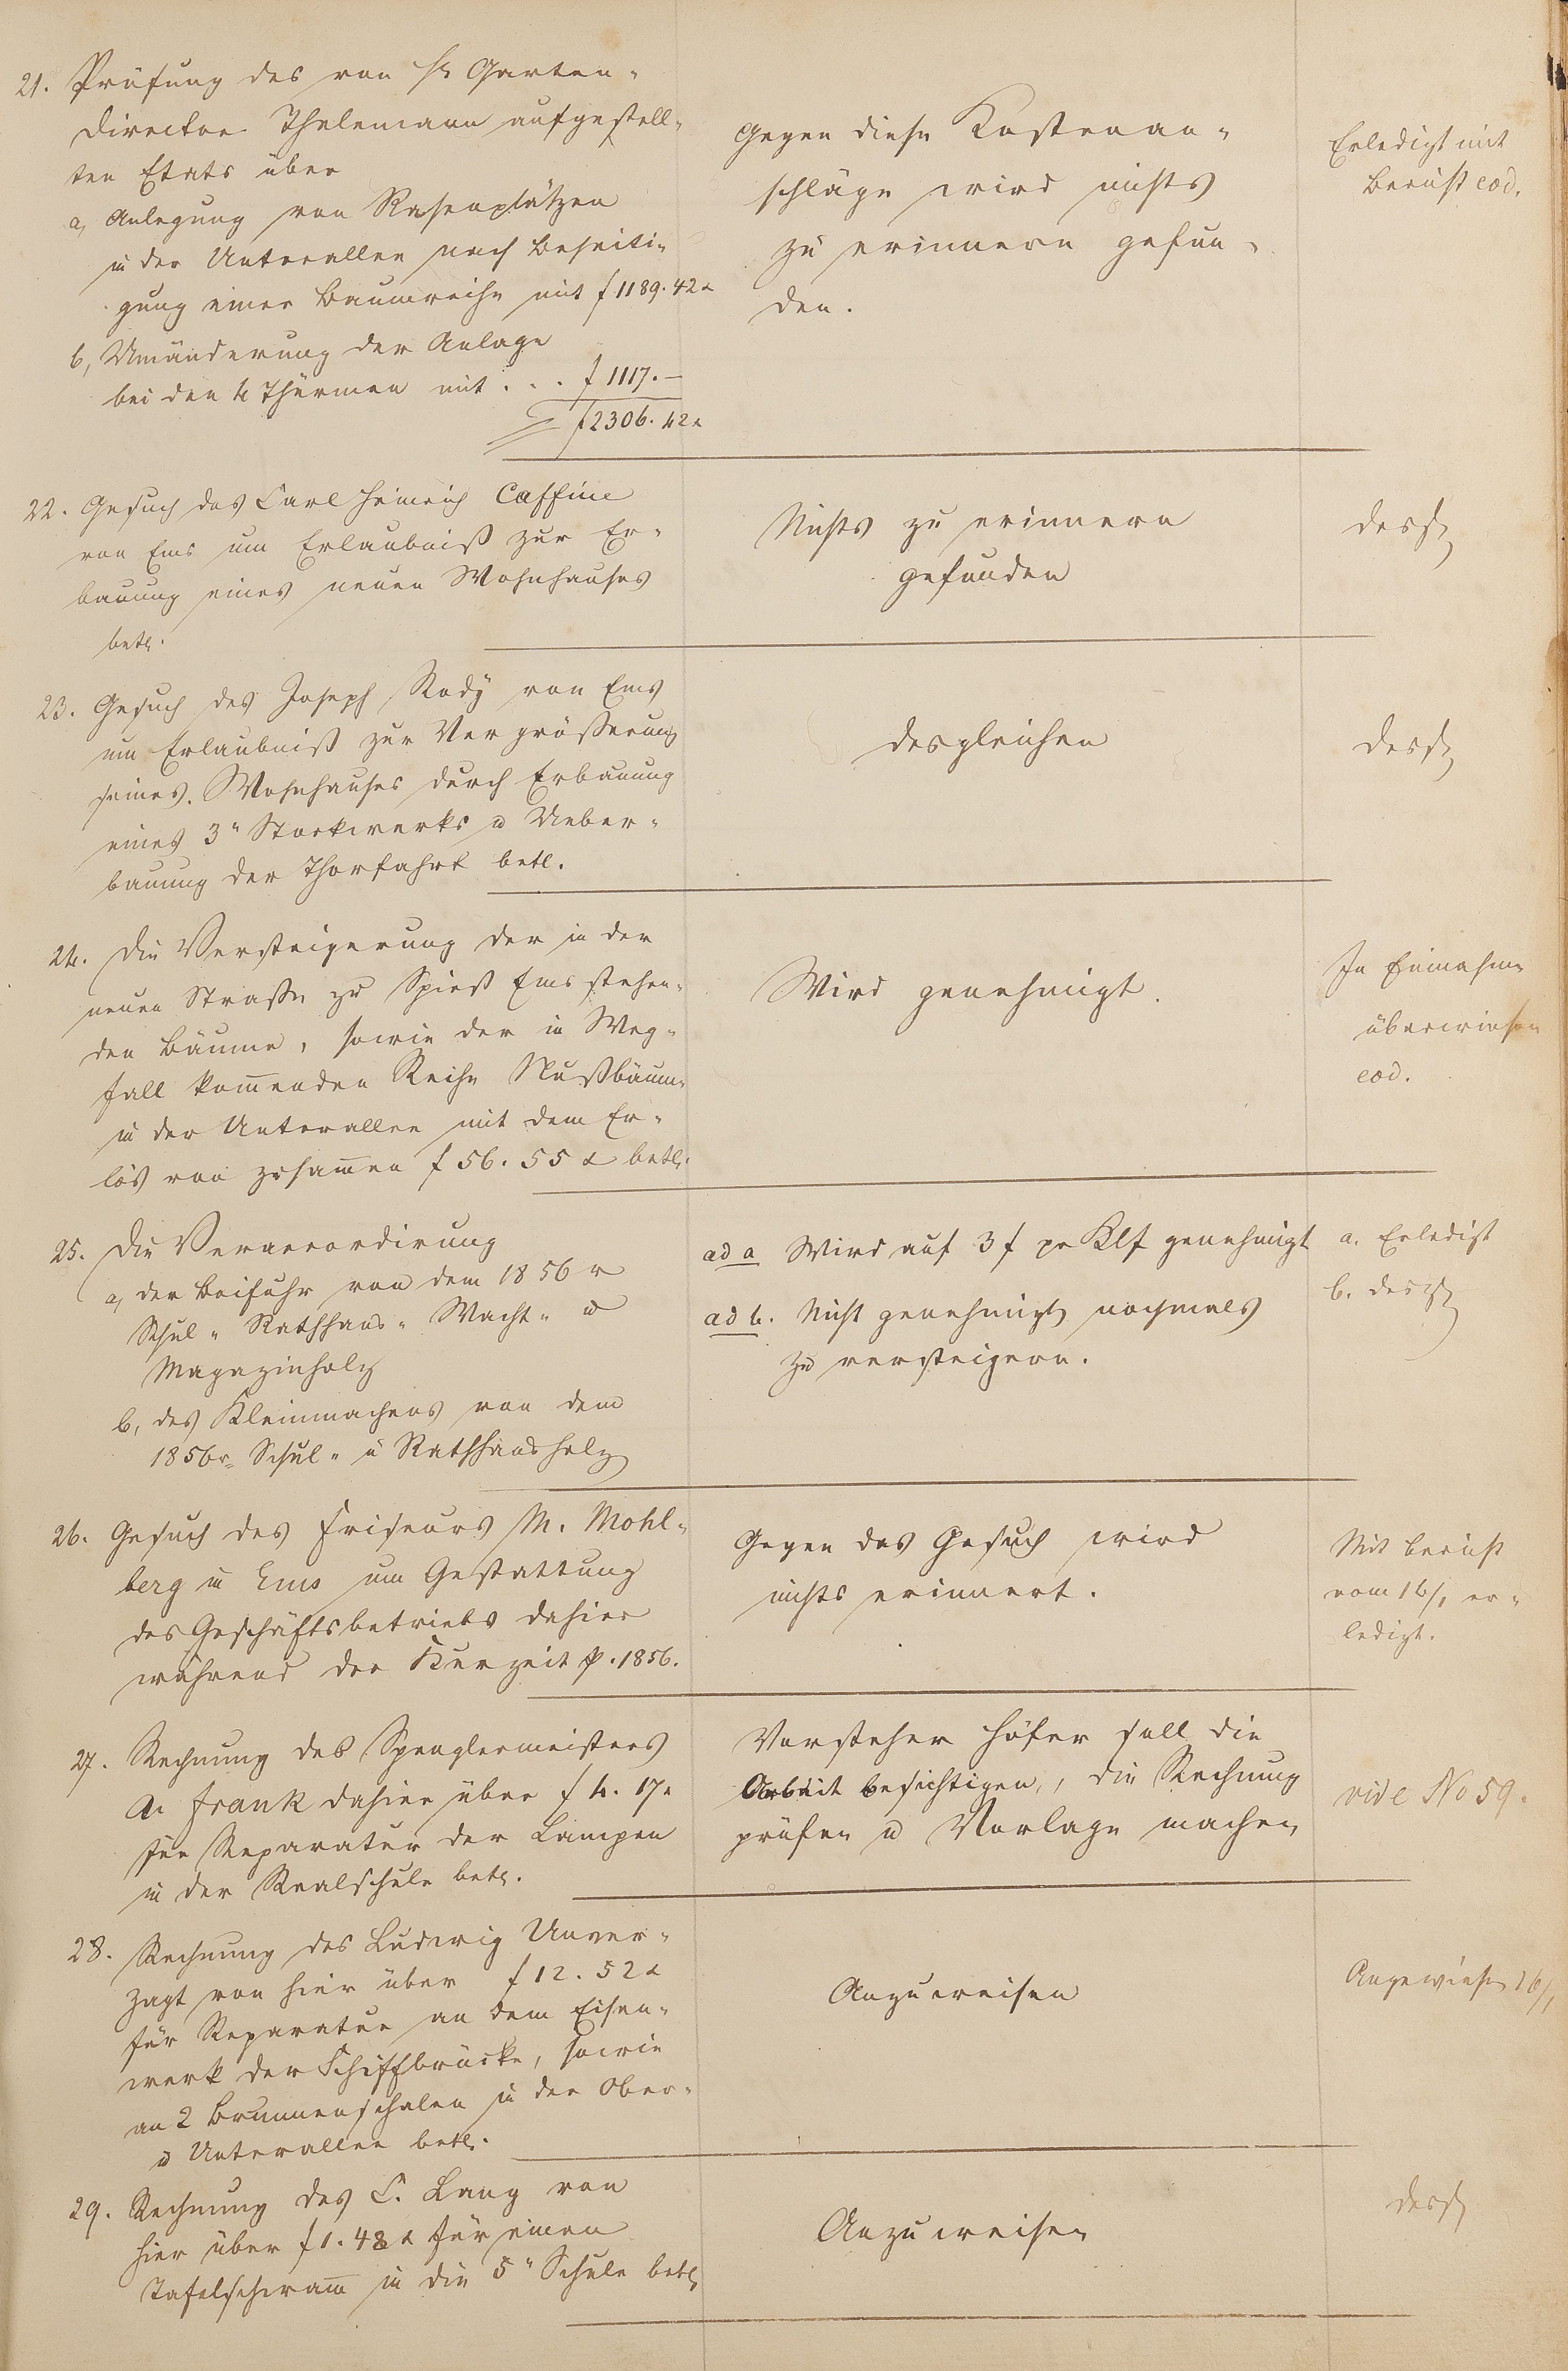 21. Prüfung des von H. Garten-
director Thelemann aufgestell-
ten Etats über
a, Anlegung von Rasenplätzen
in der Unterallee nach Beseiti-
gung einer Baumreihe mit f 1189. 42 x
b, Umänderung der Anlage
bei den 4 Thürmen mit . . . f 1117. —
f 2306. 42 x
Gegen diese Kostenan-
schläge wird nichts
zu erinnern gefun-
den.
Erledigt mit
Bericht eod.
22. Gesuch des Carl Heinrich Caffine
von Ems um Erlaubniß zur Er-
bauung eines neuen Wohnhauses
betr.
Nichts zu erinnern
gefunden
desgl
23. Gesuch des Joseph Rody von Ems
um Erlaubniß zur Vergrößerung
seines Wohnhauses durch Erbauung
eines 3n Stockwerks u Ueber-
bauung der Thorfahrt betr.
desgleichen
desgl
24. Die Versteigerung der in der
neuen Straße zu Spieß Ems stehen-
den Bäume, sowie der in Weg-
fall kom̄enden Reihe Nußbäume
in der Unterallee mit dem Er-
lös von zusam̄en f 56. 55 x betr.
Wird genehmigt.
In Einnahme
überwiesen
eod.
25. Die Veraccordirung
a, der Beifuhr von dem 1856r
Schul- Rathhaus- Wacht- u
Magazinholz
b, des Kleinmachens von dem
1856r Schul- u Rathhausholz
ad a Wird auf 3 f pr Klf genehmigt
ad b. Nicht genehmigt, nochmals
zu versteigern.
a. Erledigt
b. desgl
26. Gesuch des Friseurs M. Mohl-
berg in Ems um Gestattung
des Geschäftsbetriebs dahier
während der Kurzeit p. 1856.
Gegen das Gesuch wird
nichts erinnert.
Mit Bericht
vom 16/1 er-
ledigt.
27. Rechnung des Spenglermeisters
A. Frank dahier über f 4. 17 x
für Reparatur der Lampen
in der Realschule betr.
Vorsteher Höfer soll die
Arbeit besichtigen, die Rechnung
prüfen u Vorlage machen
vide No 59.
28. Rechnung des Ludwig Unver-
zagt von hier über f 12. 52 x
für Reparatur an dem Eisen-
werk der Schiffbrücke, sowie
an 2 Brunnenschalen in der Ober-
u Unterallee betr.
Anzuweisen
Angewiesen 16/1
29. Rechnung des C. Lang von
hier über f 1. 48 x für einen
Tafelschwam̄ in die 5n Schule betr.
Anzuweisen
desgl